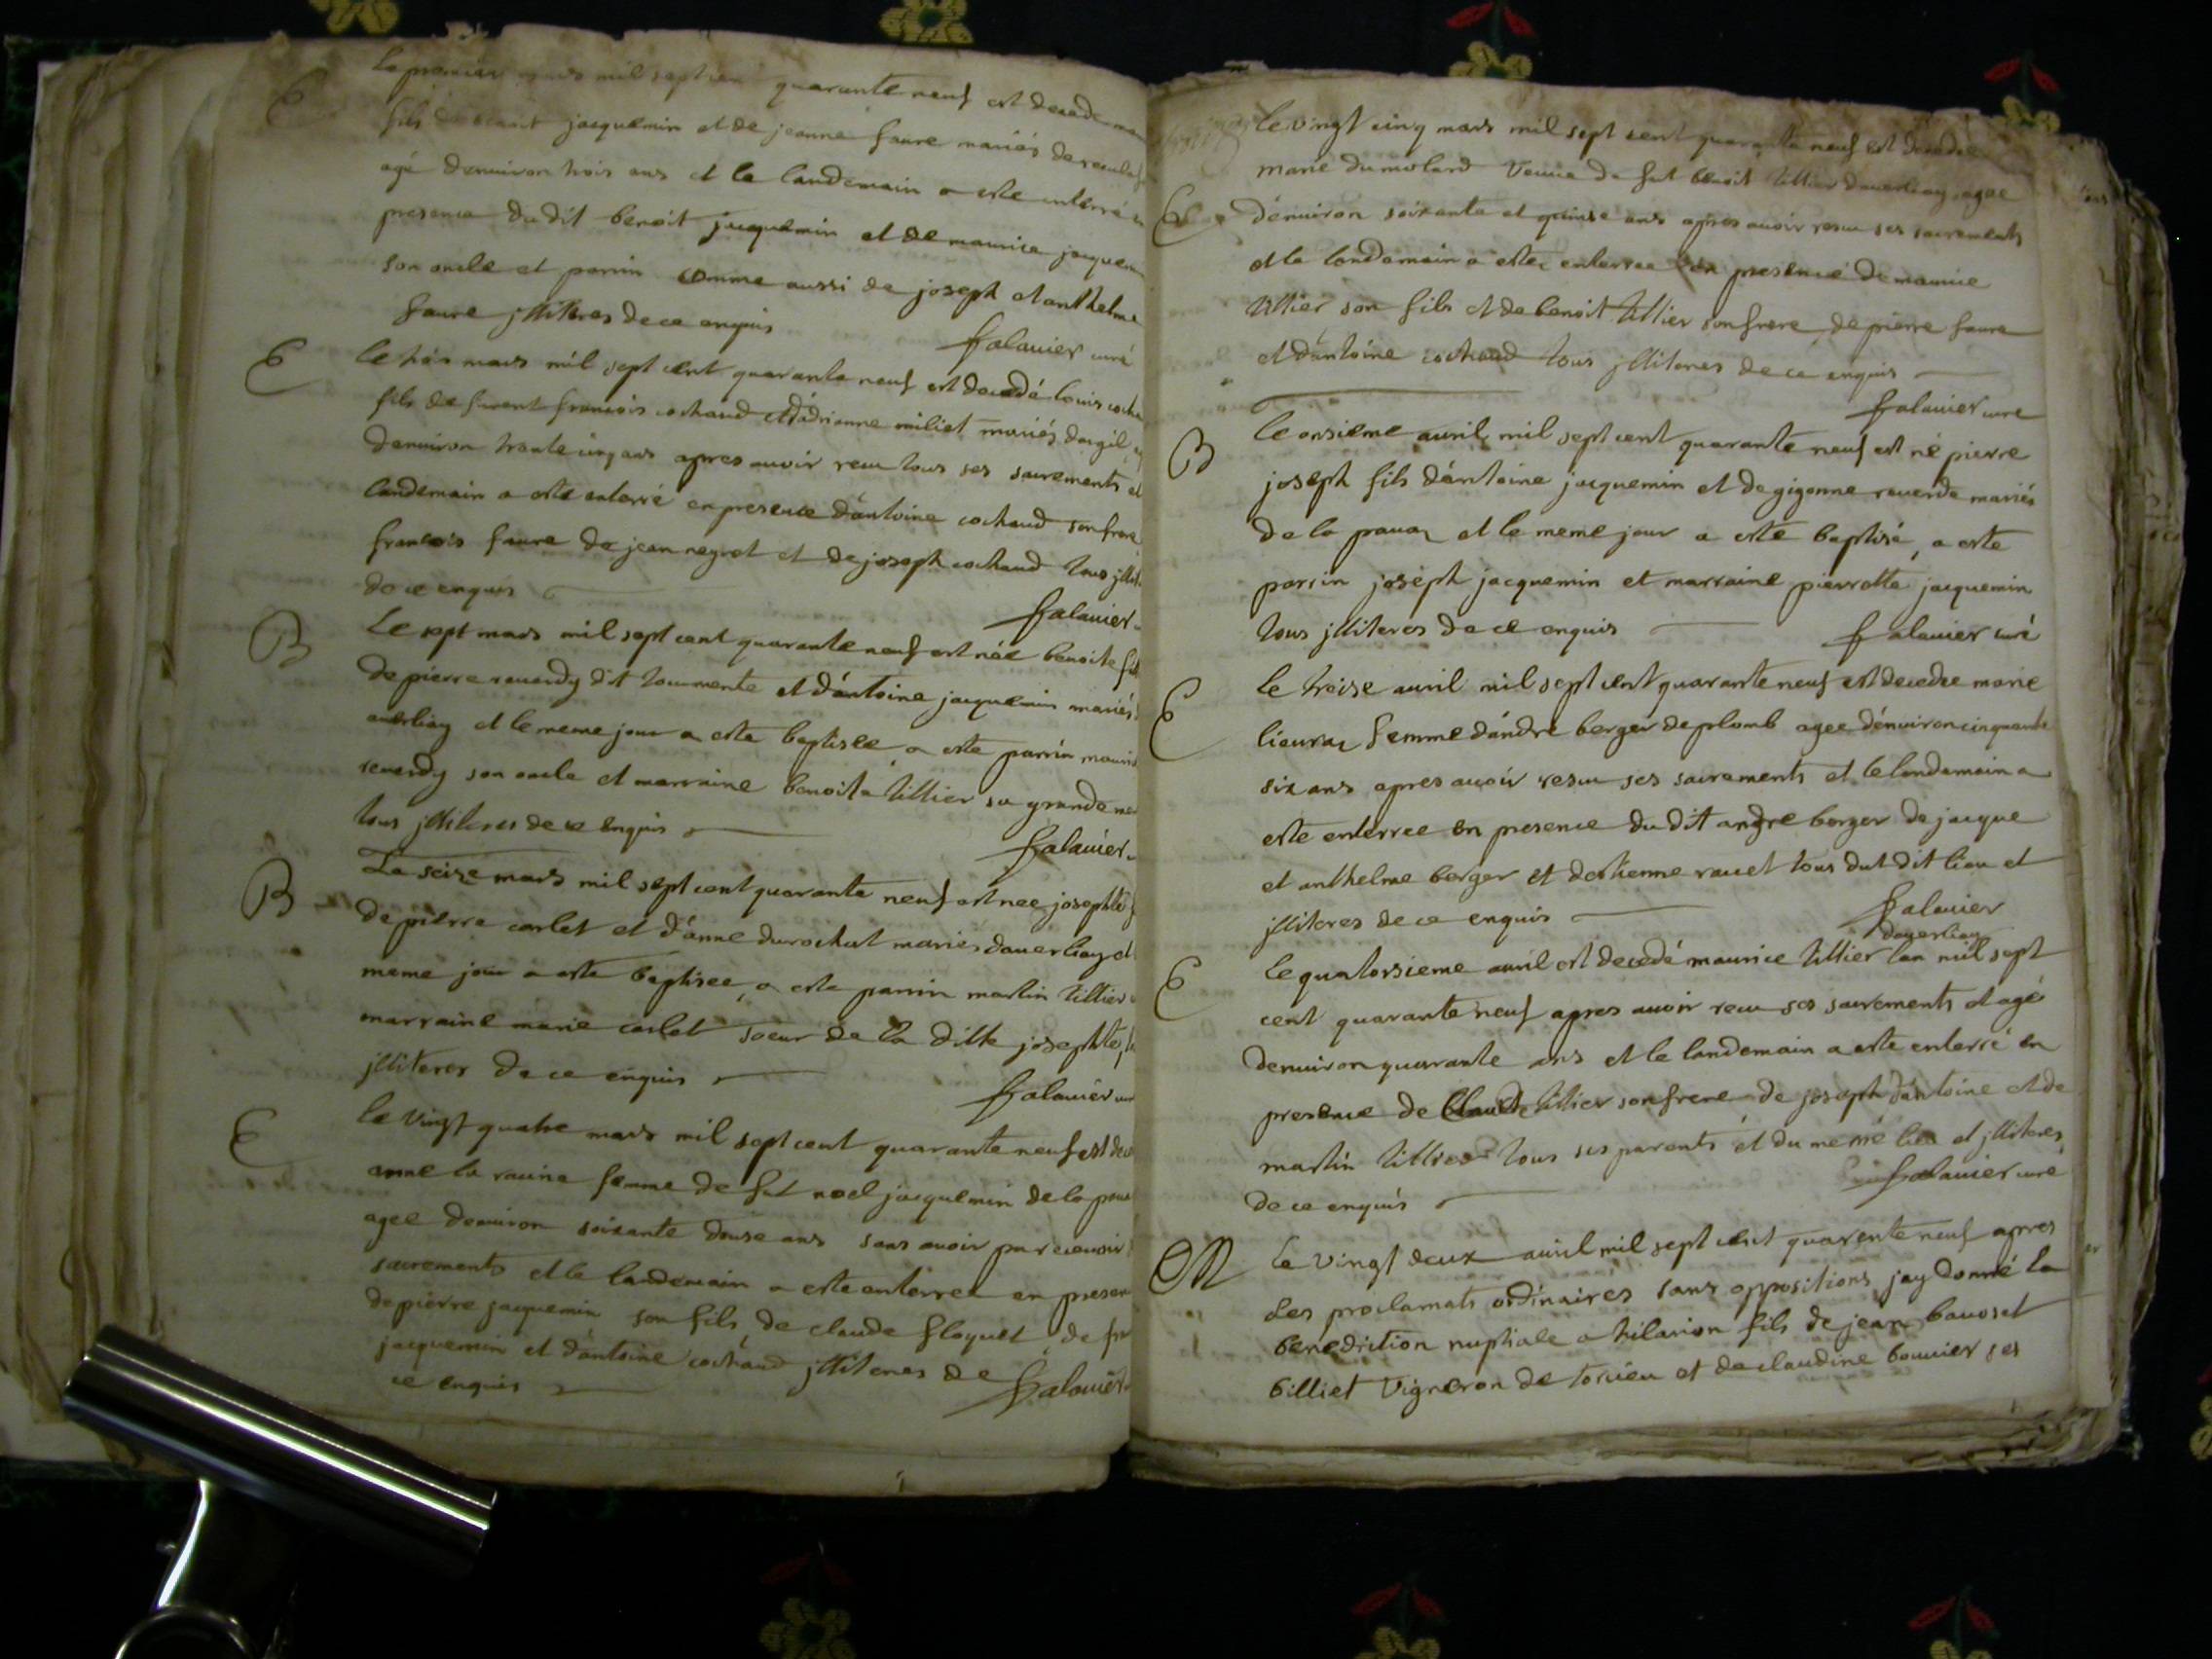 E
Le premier mars mil sept cent quarante neuf est decede
fils de benoit jacquemin et de jeanne faure mariés
agé denuiron trois ans et le landemain a este enterré
presence du dit benoit jacquemin et de maurice jacquem
son oncle et parrin comme aussi de joseph et anthelme
faure jlliteres de ce enquis
falauier curé
E
le trois mars mil sept cent quarante neuf est decedé louis cocha
fils de furent francois cochaud et dadrianne miliet mariés dargil
denuiron trante cinq ans apres auoir receu tous ses sacrements et
landemain a este enterré en presence d'antoine cochaud son frere
francois faure de jean negret et de joseph cochaud tous jllit
de ce enquis
falauier
B
Le sept mars mil sept cent quarante neuf est née benoite fil
de pierre reuerdy dit tourmente et d'antoine jacquemin mariés
auerliay et le meme jour a este baptisée, a este parrin mauri
reuerdy son oncle et marraine benoite tillier sa grande me
tous jlliteres de ce enquis
falauier
B
Le seize mars mil sept cent quarante neuf est nee josephte
de pierre carlet et d'anne durochat mariés dauerliay et
meme jour a este baptisee, a este parrin martin tillier
marraine marie carlet soeur de la ditte josephte,
jlliteres de ce enquis
falauier
E
le vingt quatre mars mil sept cent quarante neuf est dec
anne la racine femme de fut noel jacquemin de la paua
agee denuiron soixante douse ans sans auoir pu receuoir
sacrements et le landemain a este enterree en presen
de pierre jacquemin son fils, de claude floquet, de fra
jacquemin et d'antoine cochaud jlliteres de
ce enquis
falauier
le vingt cinq mars mil sept cent quarante neuf est decedee
marie du molard veuue de fut benoit tillier dauerliay, agee
E
dénuiron soixante et quinse ans apres auoir resu ses sacrements
et le landemain a estee enterree en presence de maurice
tillier son fils et de benoit tillier son frere, de pierre faure
et d'antoine cochaud tous jlliteres de ce enquis
falauier cure
B
le onsieme auril mil sept cent quarante neuf est né pierre
joseph fils d'antoine jacquemin et de gigonne reuerde mariés
de la pauaz et le meme jour a esté baptisé, a este
parrin joseph jacquemin et marraine pierrotte jacquemin
tous jlliteres de ce enquis
falauier curé
E
le treise auril mil sept cent quarante neuf est decedee marie
lieuraz femme d'andré berger de plomb agee dénuiron cinquante
six ans apres auoir resu ses sacrements et le landemain a
este enterree en presence du dit andre berger de jacque
et anthelme berger et destienne rauet tous dut dit lieu et
jlliteres de ce enquis
falauier
dauerliay
E
le quatorsieme auril est decedé maurice tillier lan mil sept
cent quarante neuf apres auoir receu ses sacrements et agé
denuiron quarante ans et le landemain a este enterré en
presence de Claude tillier son frere de joseph d'antoine et de
martin tillier tous ses parents et du meme lieu et jlliteres
de ce enquis
falauier curé
M
Le vingt deux auril mil sept cent quarente neuf apres
les proclamats ordinaires sans oppositions, jay donné la
benediction nuptiale a hilarion fils de jean bauoset
billiet vigneron de torcieu et de claudine bouuier ses